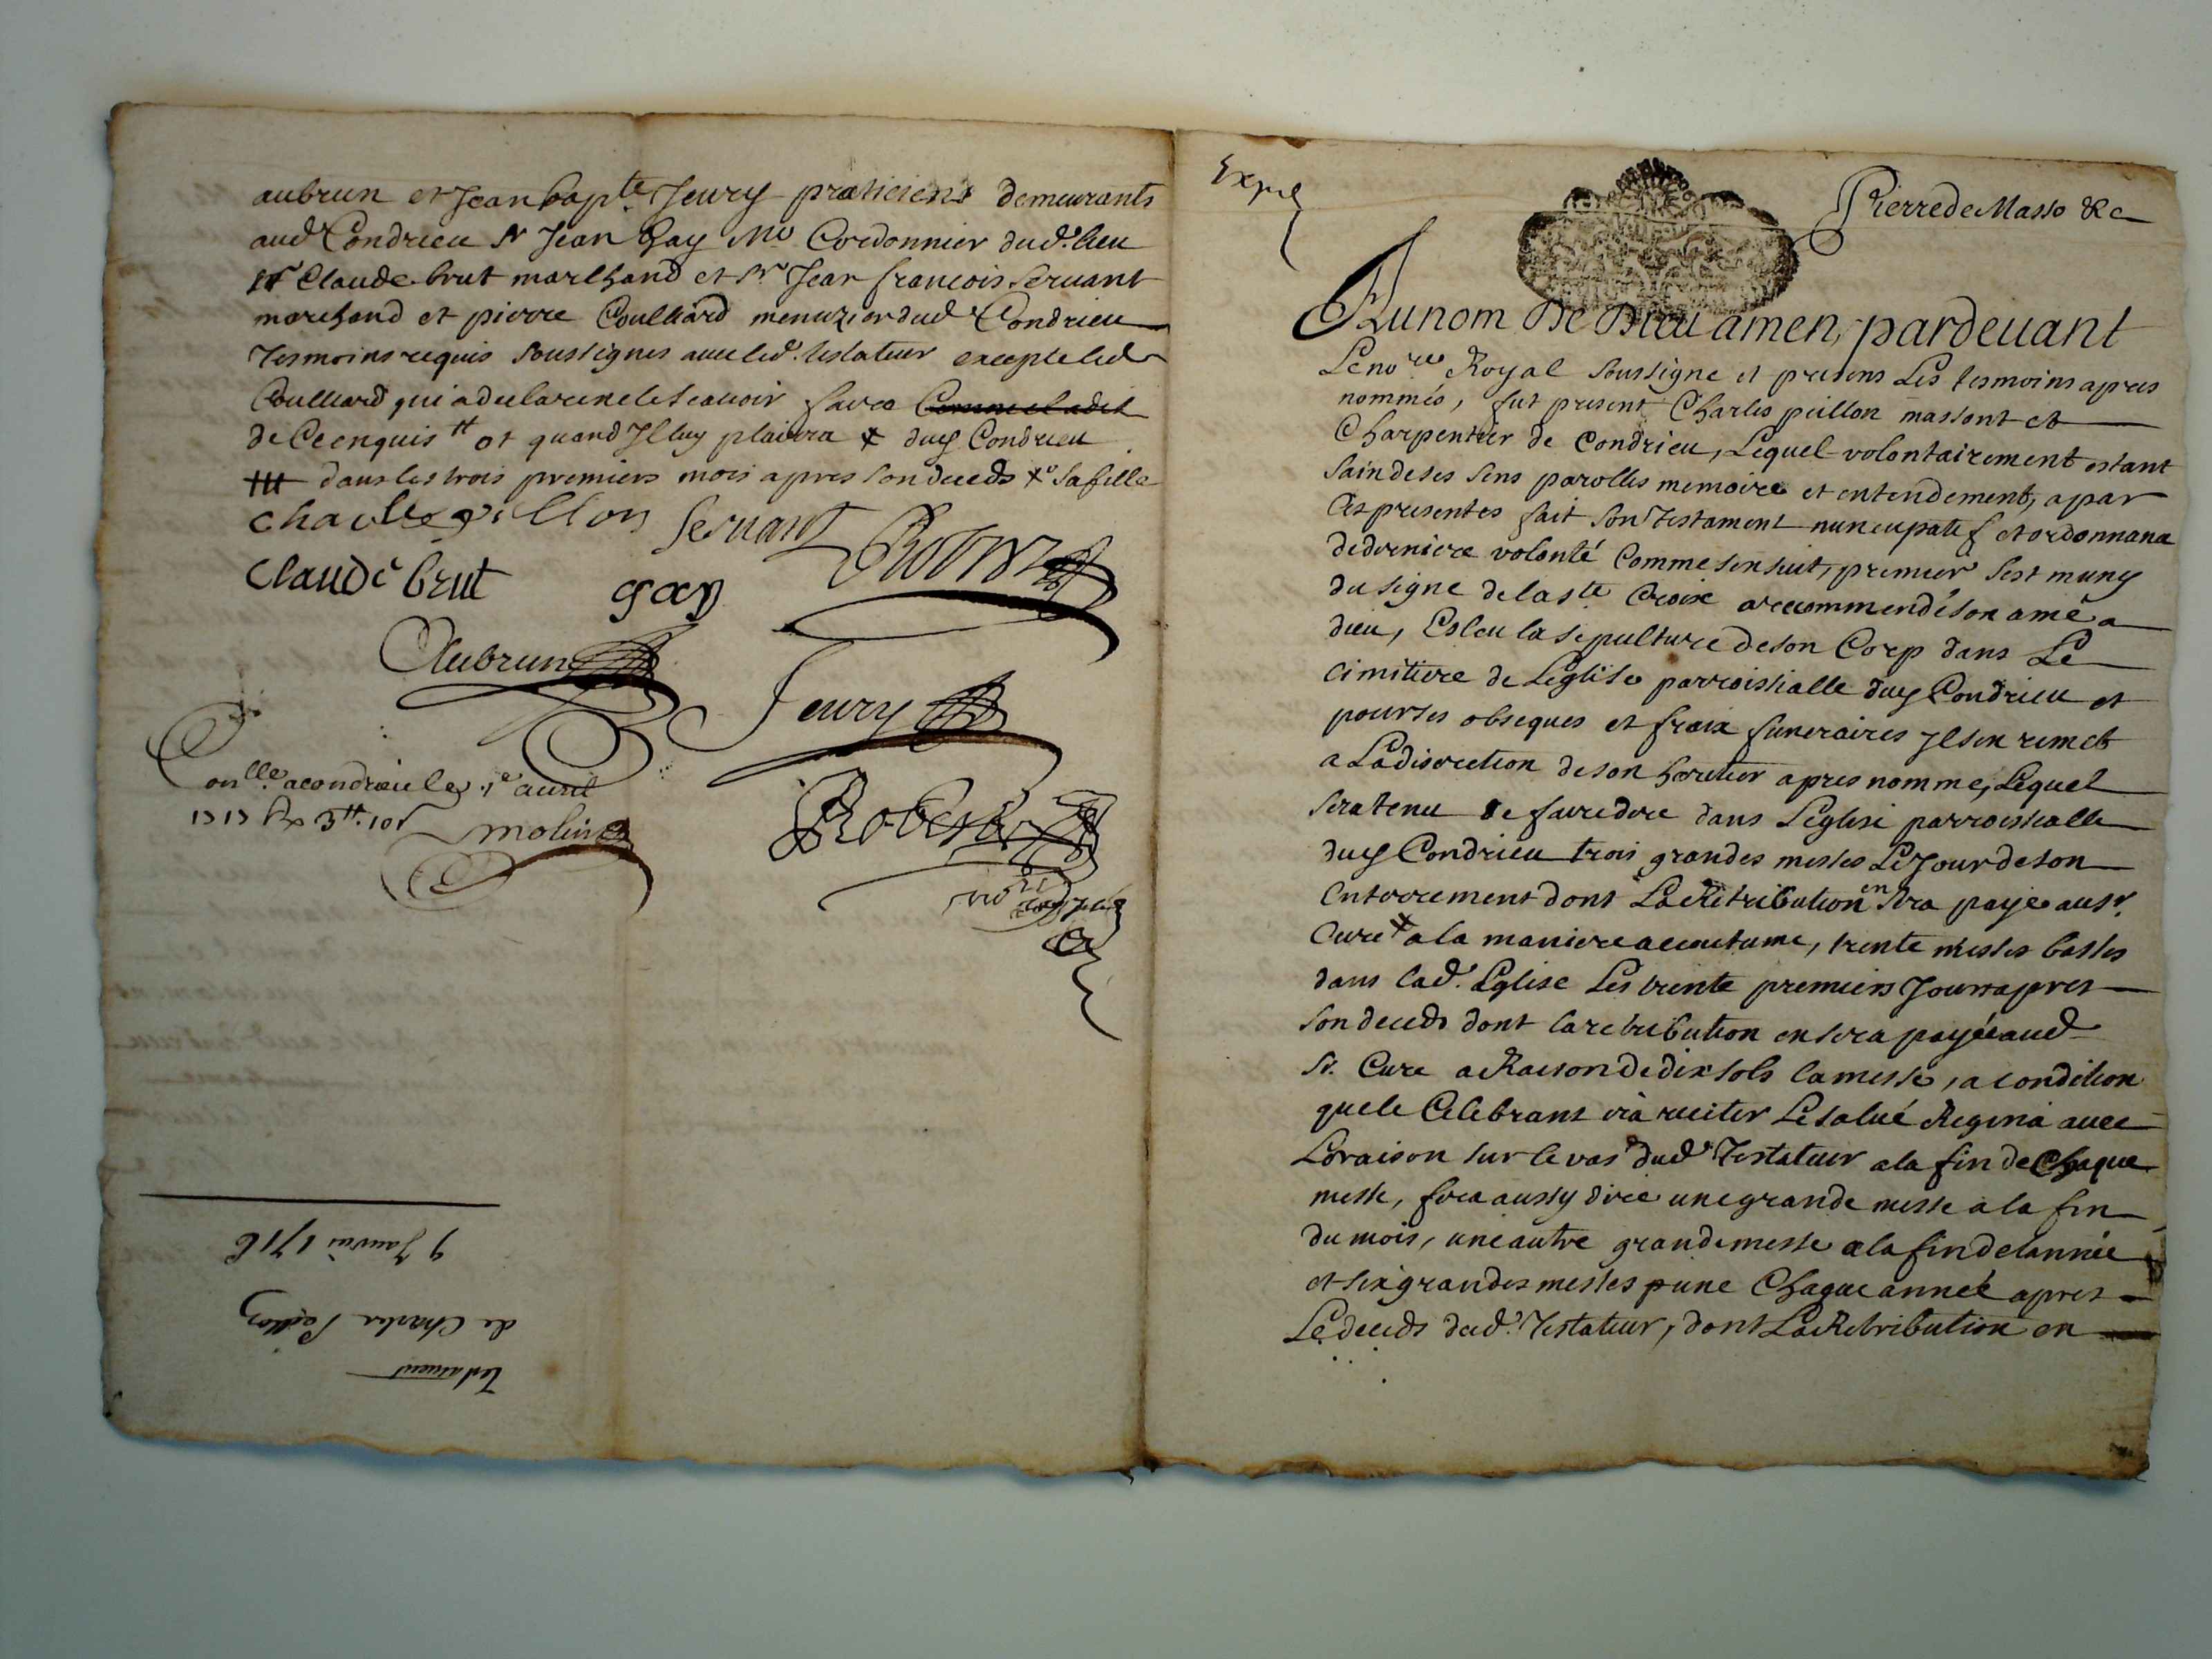 aubrun et Jean bapte Jeury praticiens demeurants
aud Condrieu Sr Jean Gay Me Cordonnier dud. lieu
Sr Claude brut marchand et Sr Jean francois Seruant
marchand et pierre Coulliard menuzier dud Condrieu
tesmoins requis soussignes auec led. testateur excepte led
Coulliard qui a declare ne le scauoir faire Comme il a dit
de Ce enquis tt et quand Il luy plaira x duy Condrieu
ttt dans les trois premiers mois apres son deceds x sa fille
charle pillon Seruant
Claude brut gay
Aubrun
Jeury
Conlle a condrieu le 1e auril
1717 Rx 3tt. 10s
molin
Robert
nore Royal
9 Januier 1716
de Charles Peillon
testament
Exped
Pierre de Masso &c
Au nom De Dieu amen, pardeuant
Le nore Royal soussigne et presens Les tesmoins apres
nommés, fut present Charles peillon masson et
Charpentier de Condrieu, Lequel volontairement estant
sain de ses sens parolles memoire et entendement, a par
Ces presentes fait son testament nuncupatif et ordonnance
de derniere volonté Comme sensuit, premier sest muny
du signe de la ste Croix a recommendé son ame a
dieu, Esleu la sepulture de son Corp dans Le
cimitiere de Leglise parroissialle duy Condrieu et
pour ses obseques et fraix funeraires Il sen remet
a La discretion de son heritier apres nomme, Lequel
sera tenu de faire dire dans Leglise parroissialle
duy Condrieu trois grandes messes Le Jour de son
Enterrement dont La Retribution en sera payé au sr.
Curé x a la maniere accoutume, trente messes basses
dans lad. Eglise Les trente premiers Jours apres
son deceds dont la retribution en sera payée aud
Sr. Cure a Raison de dix sols la messe, a condition
que le Celebrant ira reciter Le salué Regina auec
Loraison sur le vas dud Testateur a la fin de Chaque
messe, fera aussy dire une grande messe a la fin
du mois, une autre grande messe a la fin de lannée
et six grandes messes p une Chaque année apres
Le deceds dud. Testateur, dont La Retribution en